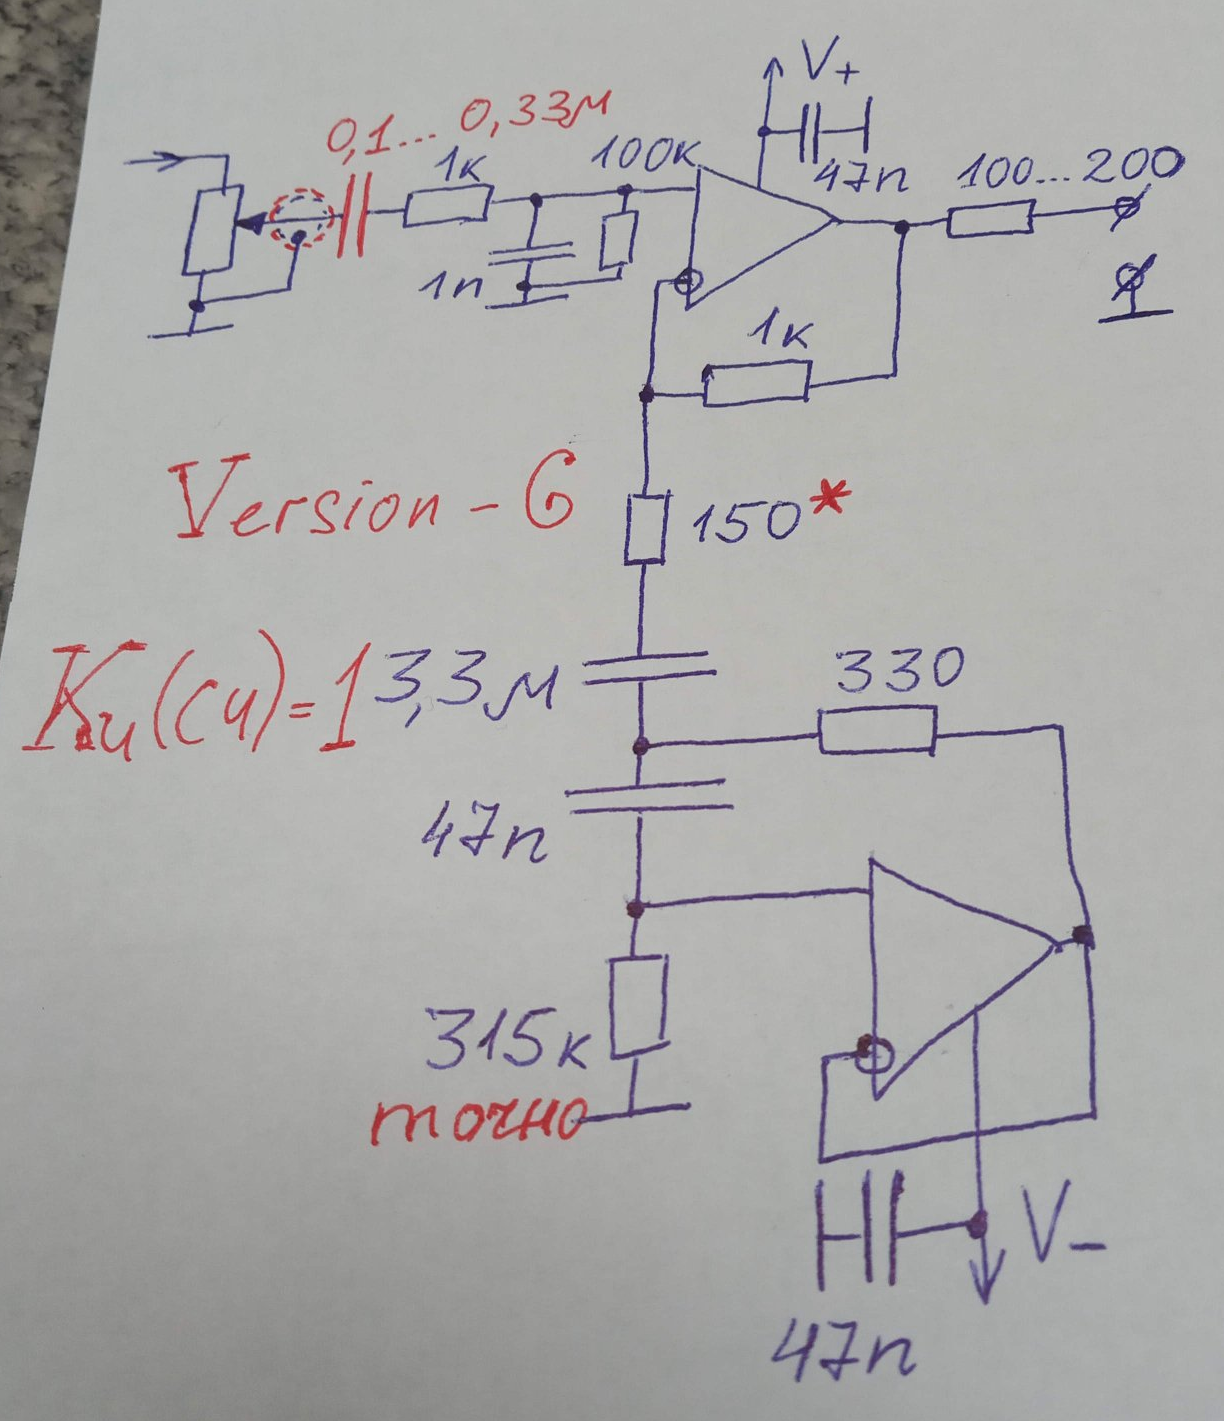 V+
0,1... 0,33м
1к
100к
47n
100...200
1n
1к
Version - 6
150*
Ku(сч)=1
3,3м
330
47n
315к
точно
V-
47n